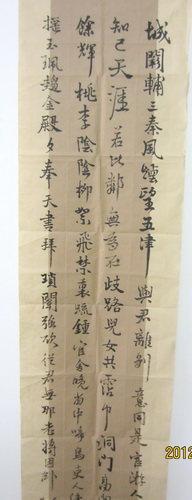 城闕輔三秦風煙望五津與君離別意同是宦游人
知己天涯若比鄰無為在歧路兒女共霑巾洞門高
餘輝桃李陰陰柳絮飛禁裏疏鐘官舍晚省中啼鳥吏人
搖玉珮趨金殿夕奉天書拜瑣闈強欲從君無那老將因
2012